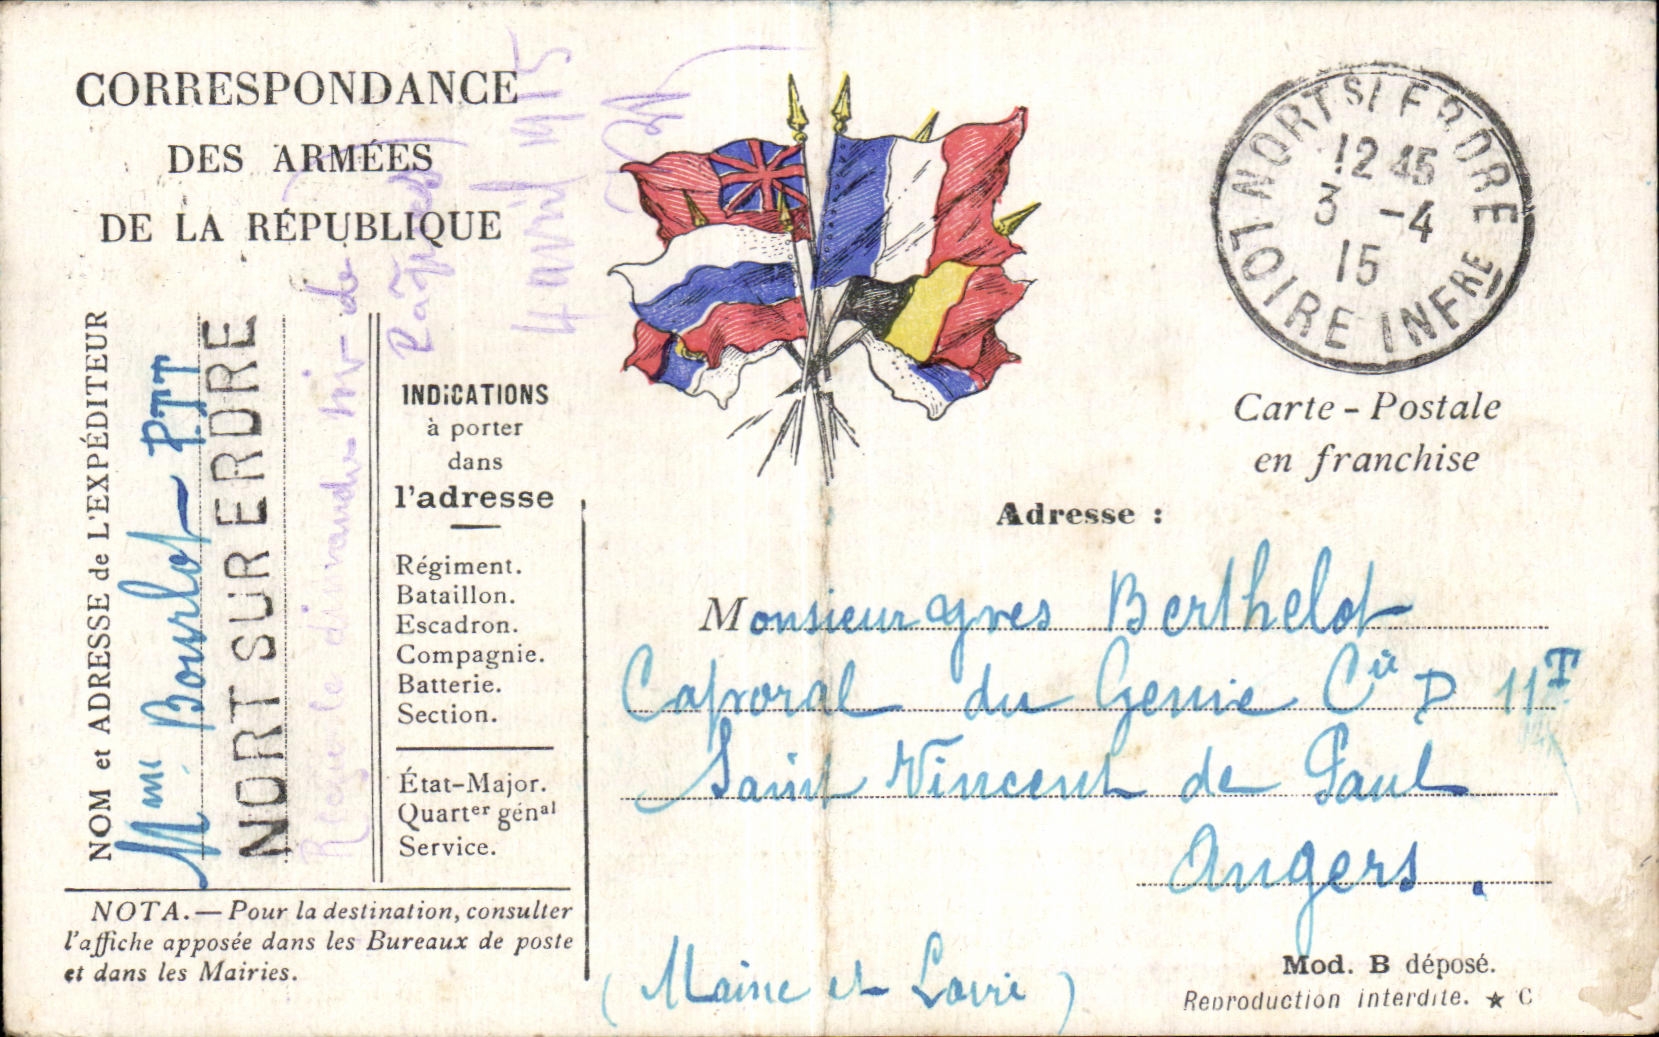 CORRESPONDANCE
DES ARMÉES
DE LA RÉPUBLIQUE
NORT S/ ERDRE
12 45
3 -4
15
LOIRE INFRE
Carte-Postale
en franchise
NOM et ADRESSE de L'EXPÉDITEUR
Mme Bourlot P.T.T
NORT SUR ERDRE
Reçue le dimanche
de Pâques
4 avril 1915
INDICATIONS
à porter
dans
l'adresse
Régiment.
Bataillon.
Escadron.
Compagnie.
Batterie.
Section.
État-Major.
Quartier génal
Service.
NOTA.—Pour la destination, consulter
l'affiche apposée dans les Bureaux de poste
et dans les Mairies.
Adresse :
Monsieur Yves Berthelot
Caporal du Genie Cie D 11T
Saint Vincent de Paul
Angers.
(Maine et Loire)
Mod. B déposé.
Reproduction interdite. ★ C